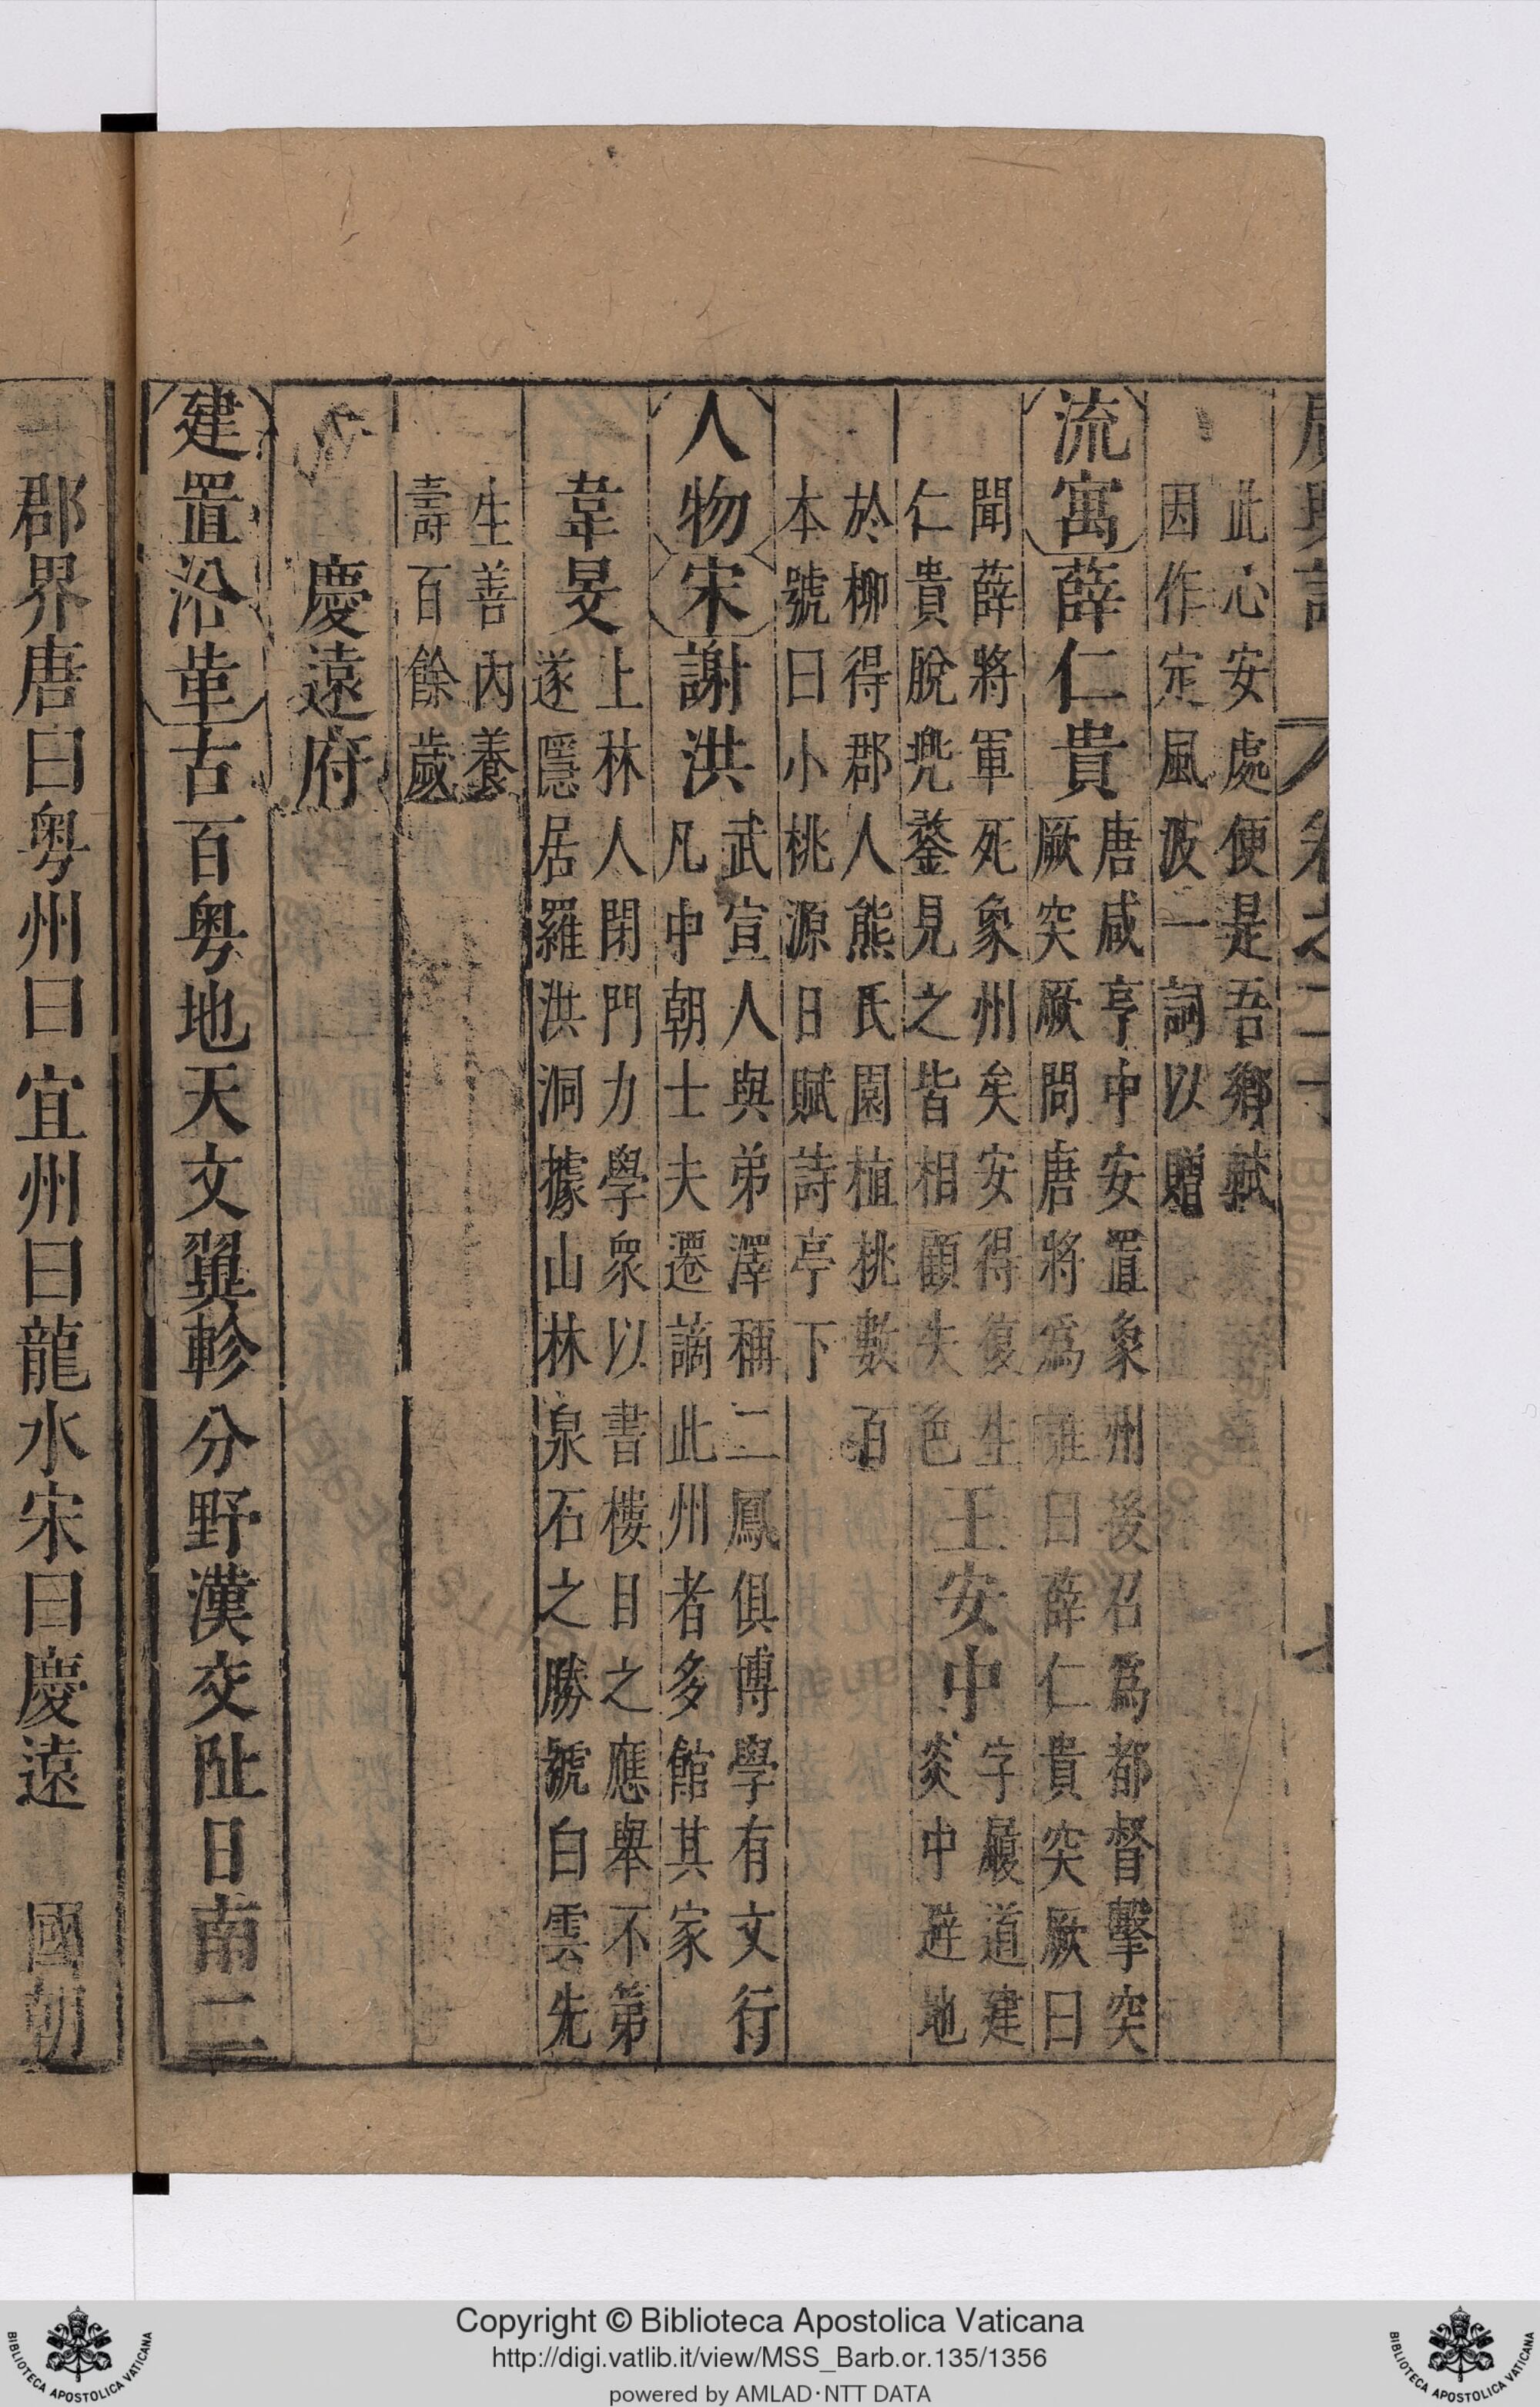 此心安處便是吾鄉軾
因作定風波一詞以贈
流寓薛仁貴
唐咸亨中安置象州後召爲都督擊突
厥突厥問唐將爲誰曰薛仁貴突厥曰
聞薛將軍死象州矣安得復生
仁貴脫兠鍪見之皆相顧失色
王安中
字履道建
炎中避地
於柳得郡人熊氏園植桃數百
本號曰小桃源日賦詩亭下
人物宋謝洪
武宣人與弟澤稱二鳳俱博學有文行
凡中朝士夫遷謫此州者多館其家
韋旻
上林人閉門力學衆以書樓目之應舉不第
遂隱居羅洪洞據山林泉石之勝號白雲先
生善內養
壽百餘歲
慶遠府
建置沿革古百粤地天文翼軫分野漢交阯日南二
郡界唐曰粤州曰宜州曰龍水宋曰慶遠 國朝
Copyright © Biblioteca Apostolica Vaticana
http://digi.vatlib.it/view/MSS_Barb.or.135/1356
powered by AMLAD·NTT DATA
BIBLIOTECA APOSTOLICA VATICANA
BIBLIOTECA APOSTOLICA VATICANA